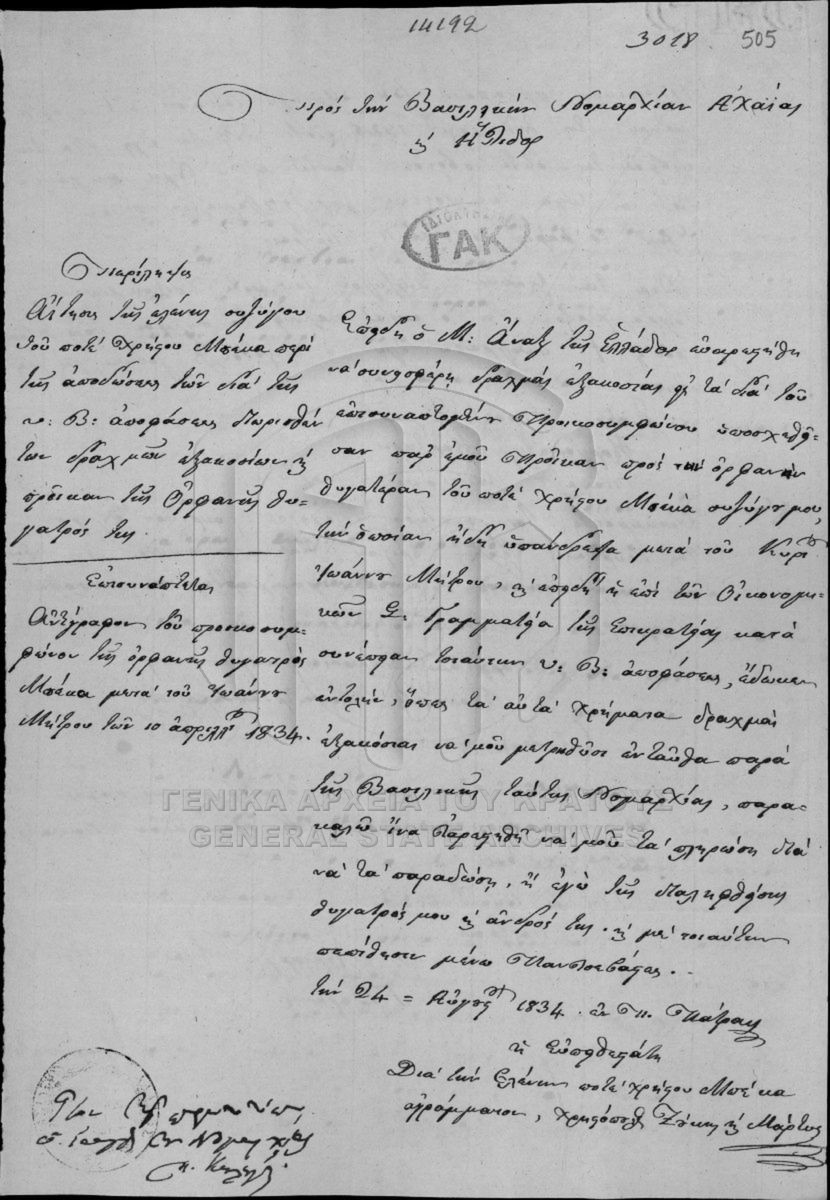 14192
3018 505
Πρός την Βασιλικήν Νομαρχίαν Αχαΐας
ΙΔΙΟΚΤΗΣΙΑ
ΓΑΚ
Περίληψις
Αίτησις της Ελένης συζύγου
του ποτέ Χρήστου Μπέκα περί
της αποδώσεως των διά της
υ: Β: αποφάσεως
των δραχμών εξακοσίων
προίκαν της Ορφανής θυ-
γατρός της.
Επισυνάπτεται
Αντίγραφον του προικοσυμ-
φώνου της ορφανής θυγατρός
Μπέκα μετά του Ιωάννου
Μήτρου των 10 απριλλ 1834.
Επειδή ο Μ: Άναξ της Ελλάδος ευηρεστήθη
να συνεισφέρη δραχμάς εξακοσίας τα διά του
επισυναπτομένου Προικοσυμφώνου υποσχεθεί-
σαν παρ εμού Προίκαν προς την ορφανήν
θυγατέραν του ποτέ Χρήστου Μπέκα συζύγου μου,
την οποίαν ήδη υπάνδρευσα μετά του Κυρ
Ιωάννου Μήτρου, επειδή η επί των Οικονομι-
κών Γραμματεία της Επικρατείας κατά
συνέπειαν τοιαύτης υ: Β: αποφάσεως, έδωκεν
εντολήν, τα αυτά χρήματα δραχμάς
εξακόσιας να μου μετρηθώσι ενταύθα παρά
της Βασιλικής ταύτης Νομαρχίας, παρα-
καλώ ίνα να μου τα πληρώση διά
να τα παραδώσω εγώ της
θυγατρός μου ανδρός της. με τοιαύτην
πεποίθησιν μένω Πανσεβάστως.
την 24 = Αυγούστ 1834. εν Π. Πάτραις
η Ευπειθεστάτη
Διά την Ελένην ποτέ Χρήστου Μπέκα
αγράμματον,
ΓΕΝΙΚΑ ΑΡΧΕΙΑ ΤΟΥ ΚΡΑΤΟΥΣ
GENERAL STATE ARCHIVES